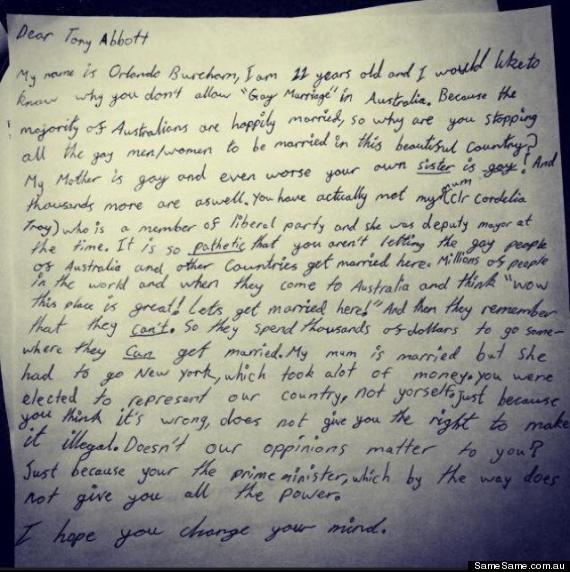 Dear Tony Abbott
My name is Orlando Burcham, I am 11 years old and I would like to
know why you don't allow "Gay Marriage" in Australia. Because the
majority of Australians are happily married, so why are you stopping
all the gay men/women to be married in this beautiful Country?
My Mother is gay and even worse your own sister is gay! And
thousands more are aswell. You have actually met my mum (Clr Cordelia
Troy) who is a member of liberal party and she was deputy mayor at
the time. It is so pathetic that you aren't letting the gay people
of Australia and other Countries get married here. Millions of people
in the world and when they come to Australia and think "wow
this place is great! Lets get married here!" And then they remember
that they can't. So they spend thousands of dollars to go some-
where they Can get married. My mum is married but she
had to go New York, which took alot of money. You were
elected to represent our country, not yorself. Just because
you think it's wrong, does not give you the right to make
it illegal. Doesn't our oppinions matter to you?
Just because your the prime minister, which by the way does
not give you all the power.
I hope you change your mind.
SameSame.com.au